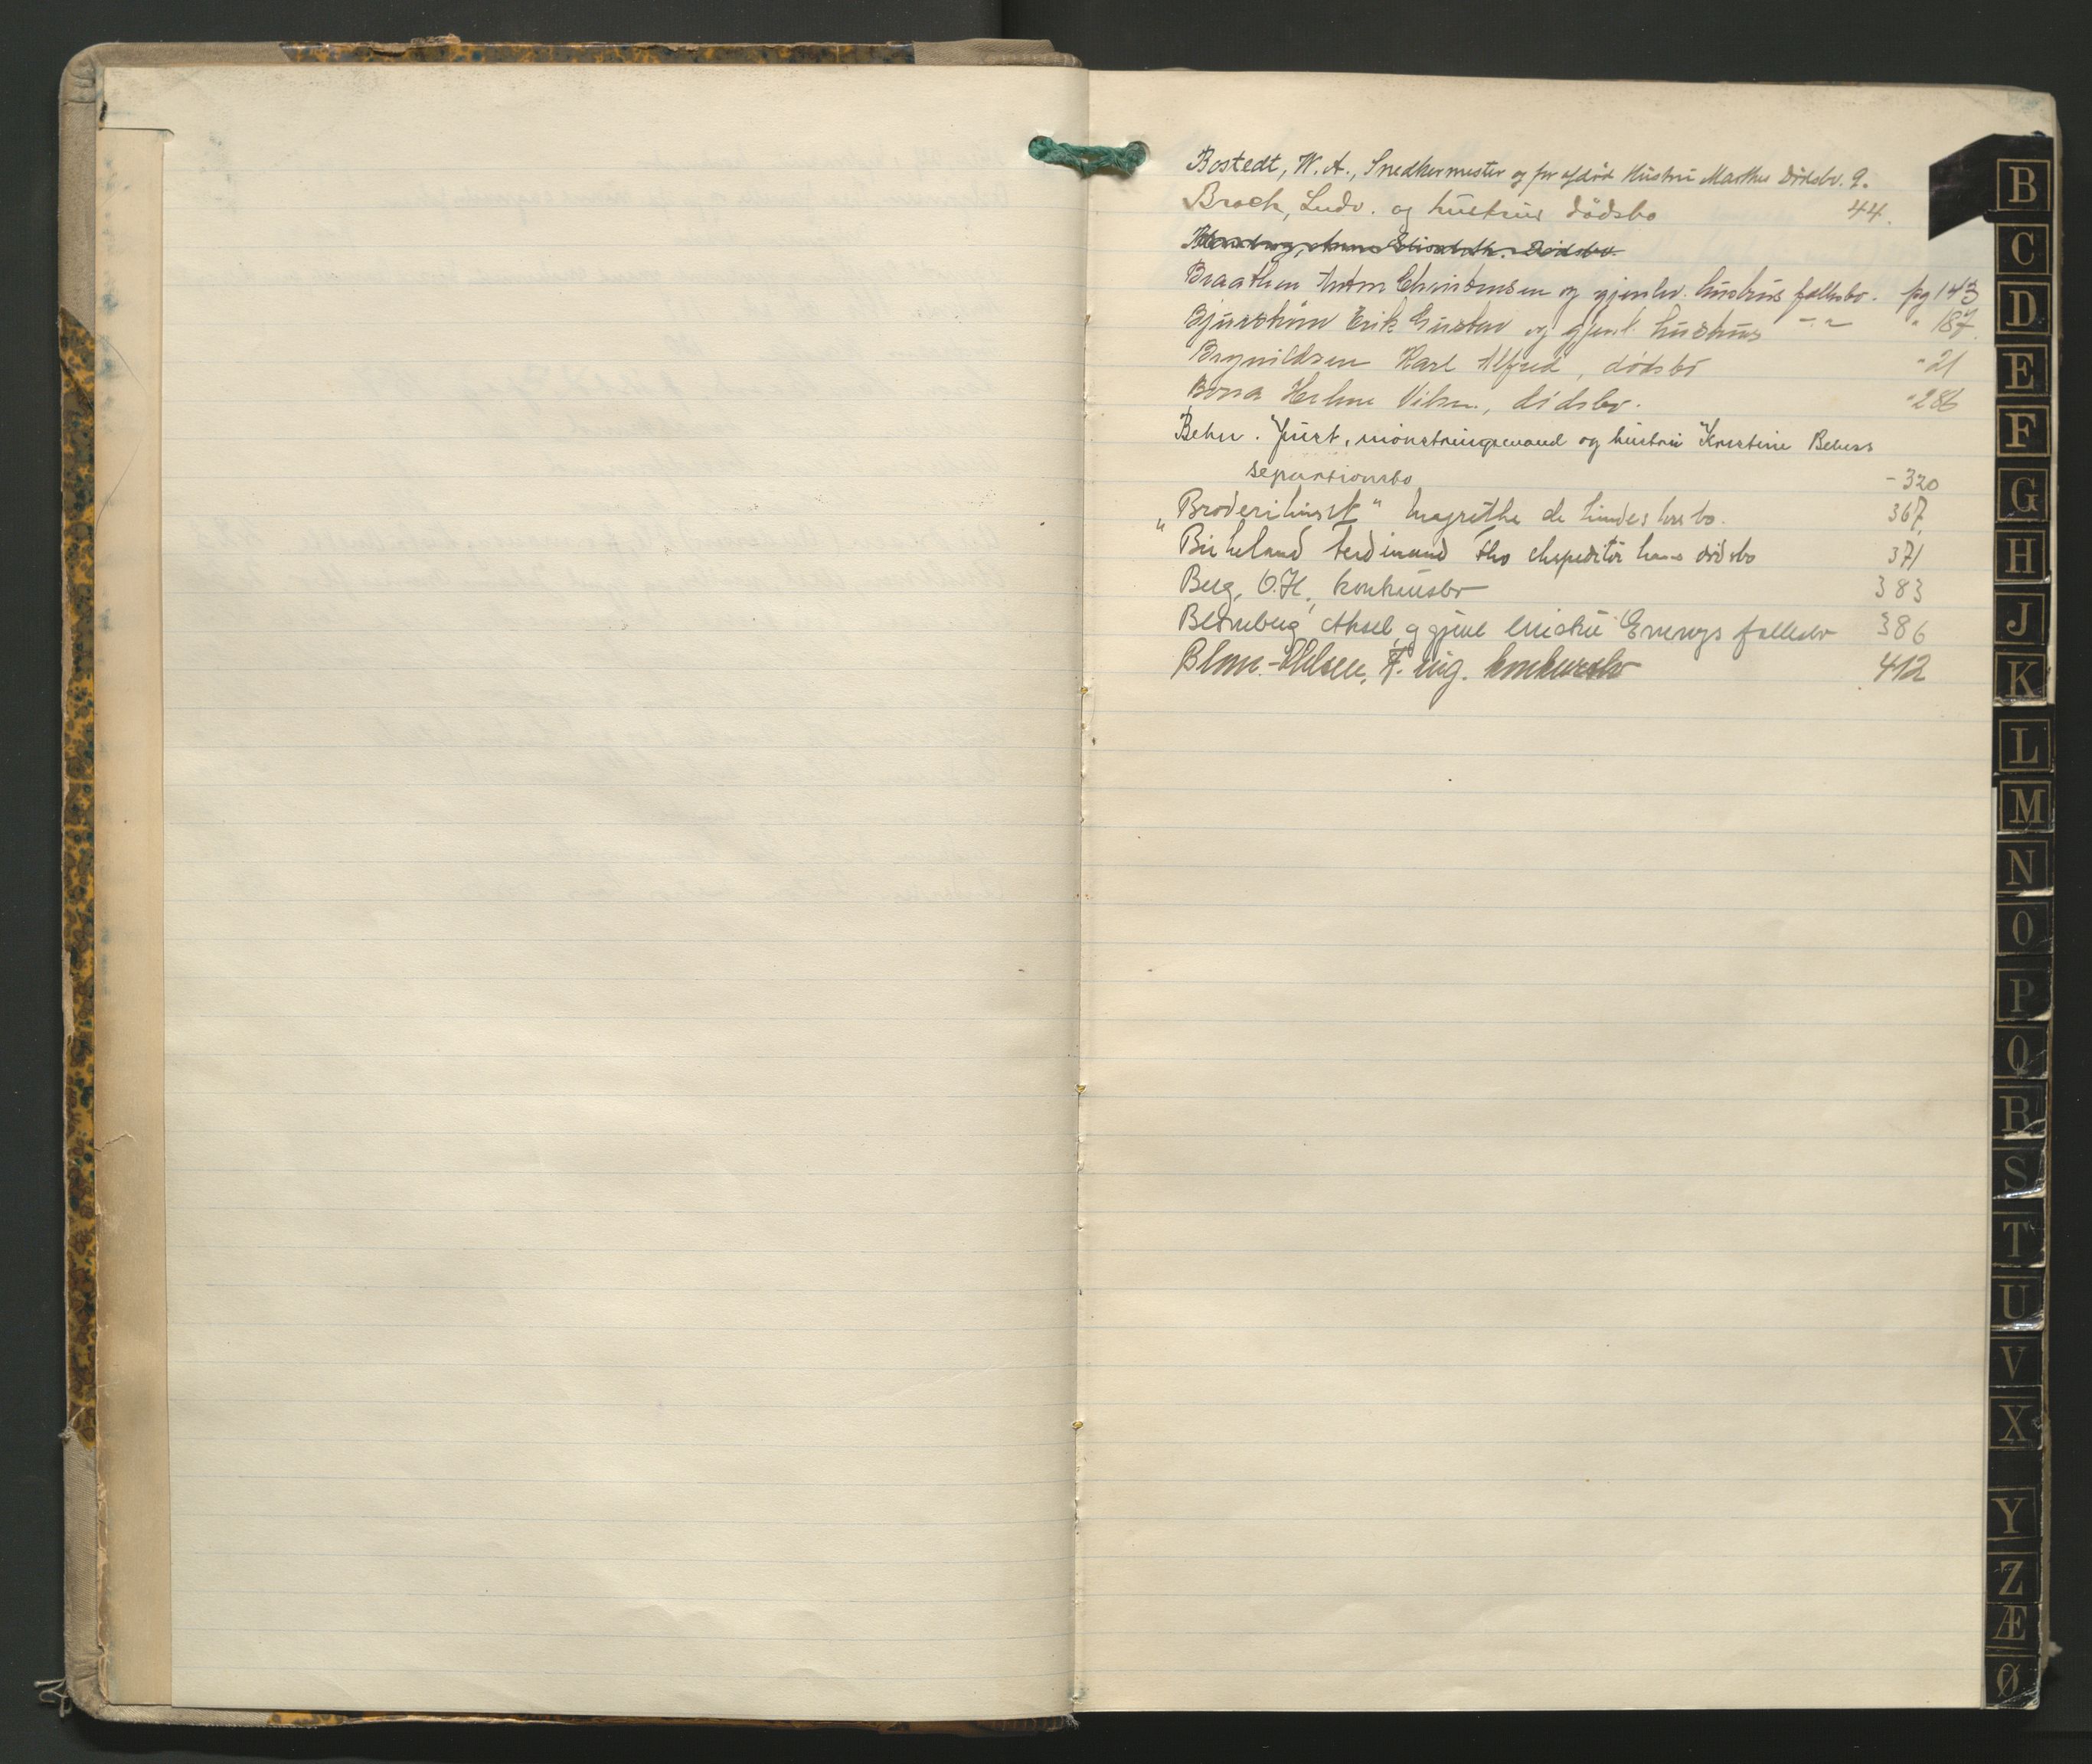 Bostedt, W. A., Snedkermester og før afdød Hustru Marthes Dødsbo. 9.
Broch, Ludv. og hustrus dödsbo 44.
Anna Elisabeth. Dødsbo.
Braathen Anton Christensen og gjenlev. hustrus fællesbo. pg 143
Bjurström Erik Gustav og gjenl. hustrus -"- " 187.
Brynildsen Karl Alfred, dødsbo " 21
Borra Helene Vilsen., dødsbo. " 286
Behn. Just, mönstringsmand og hustru Kristine Behns
separationsbo - 320
"Broderihuset" Magrethe de konkursbo. 367.
Birkeland Ferdinand Tho ekspeditör hans dödsbo 371
Berg, O.H., konkursbo 383
Blomberg Aksel, og gjenl enke fællesbo 386
Blom-Olsen, F. ing. konkursbo 412
B
C
D
E
F
G
H
J
K
L
M
N
O
P
Q
R
S
T
U
V
X
Y
Z
Æ
Ø